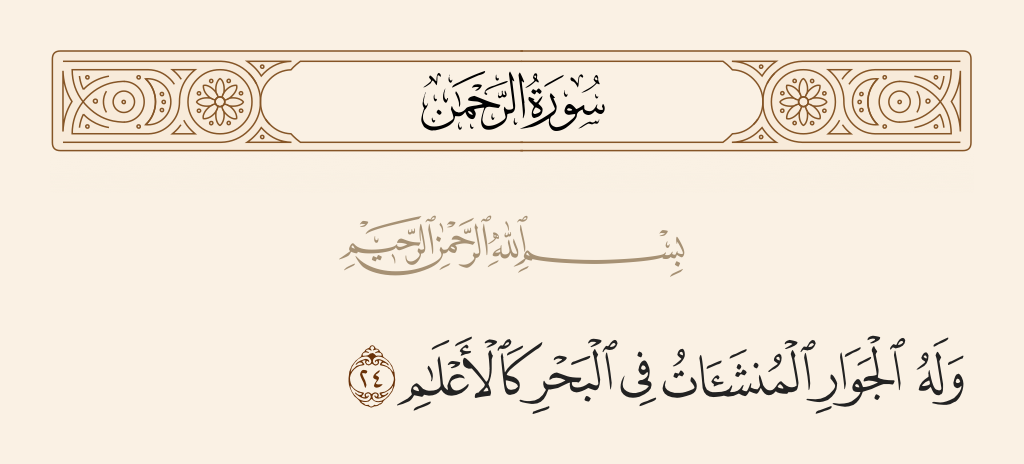 سُورَةُ الرَّحْمَٰن
بِسْمِ ٱللَّهِ ٱلرَّحْمَٰنِ ٱلرَّحِيمِ
وَلَهُ ٱلْجَوَارِ ٱلْمُنشَـَٔاتُ فِى ٱلْبَحْرِ كَٱلْأَعْلَٰمِ ٢٤